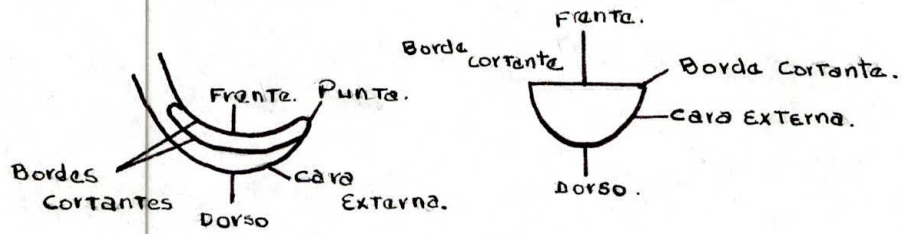 Frente.
Punta.
Bordes
Cortantes
Dorso
Cara
Externa.
Frente.
Borde
cortante
Borde Cortante.
Cara Externa.
Dorso.